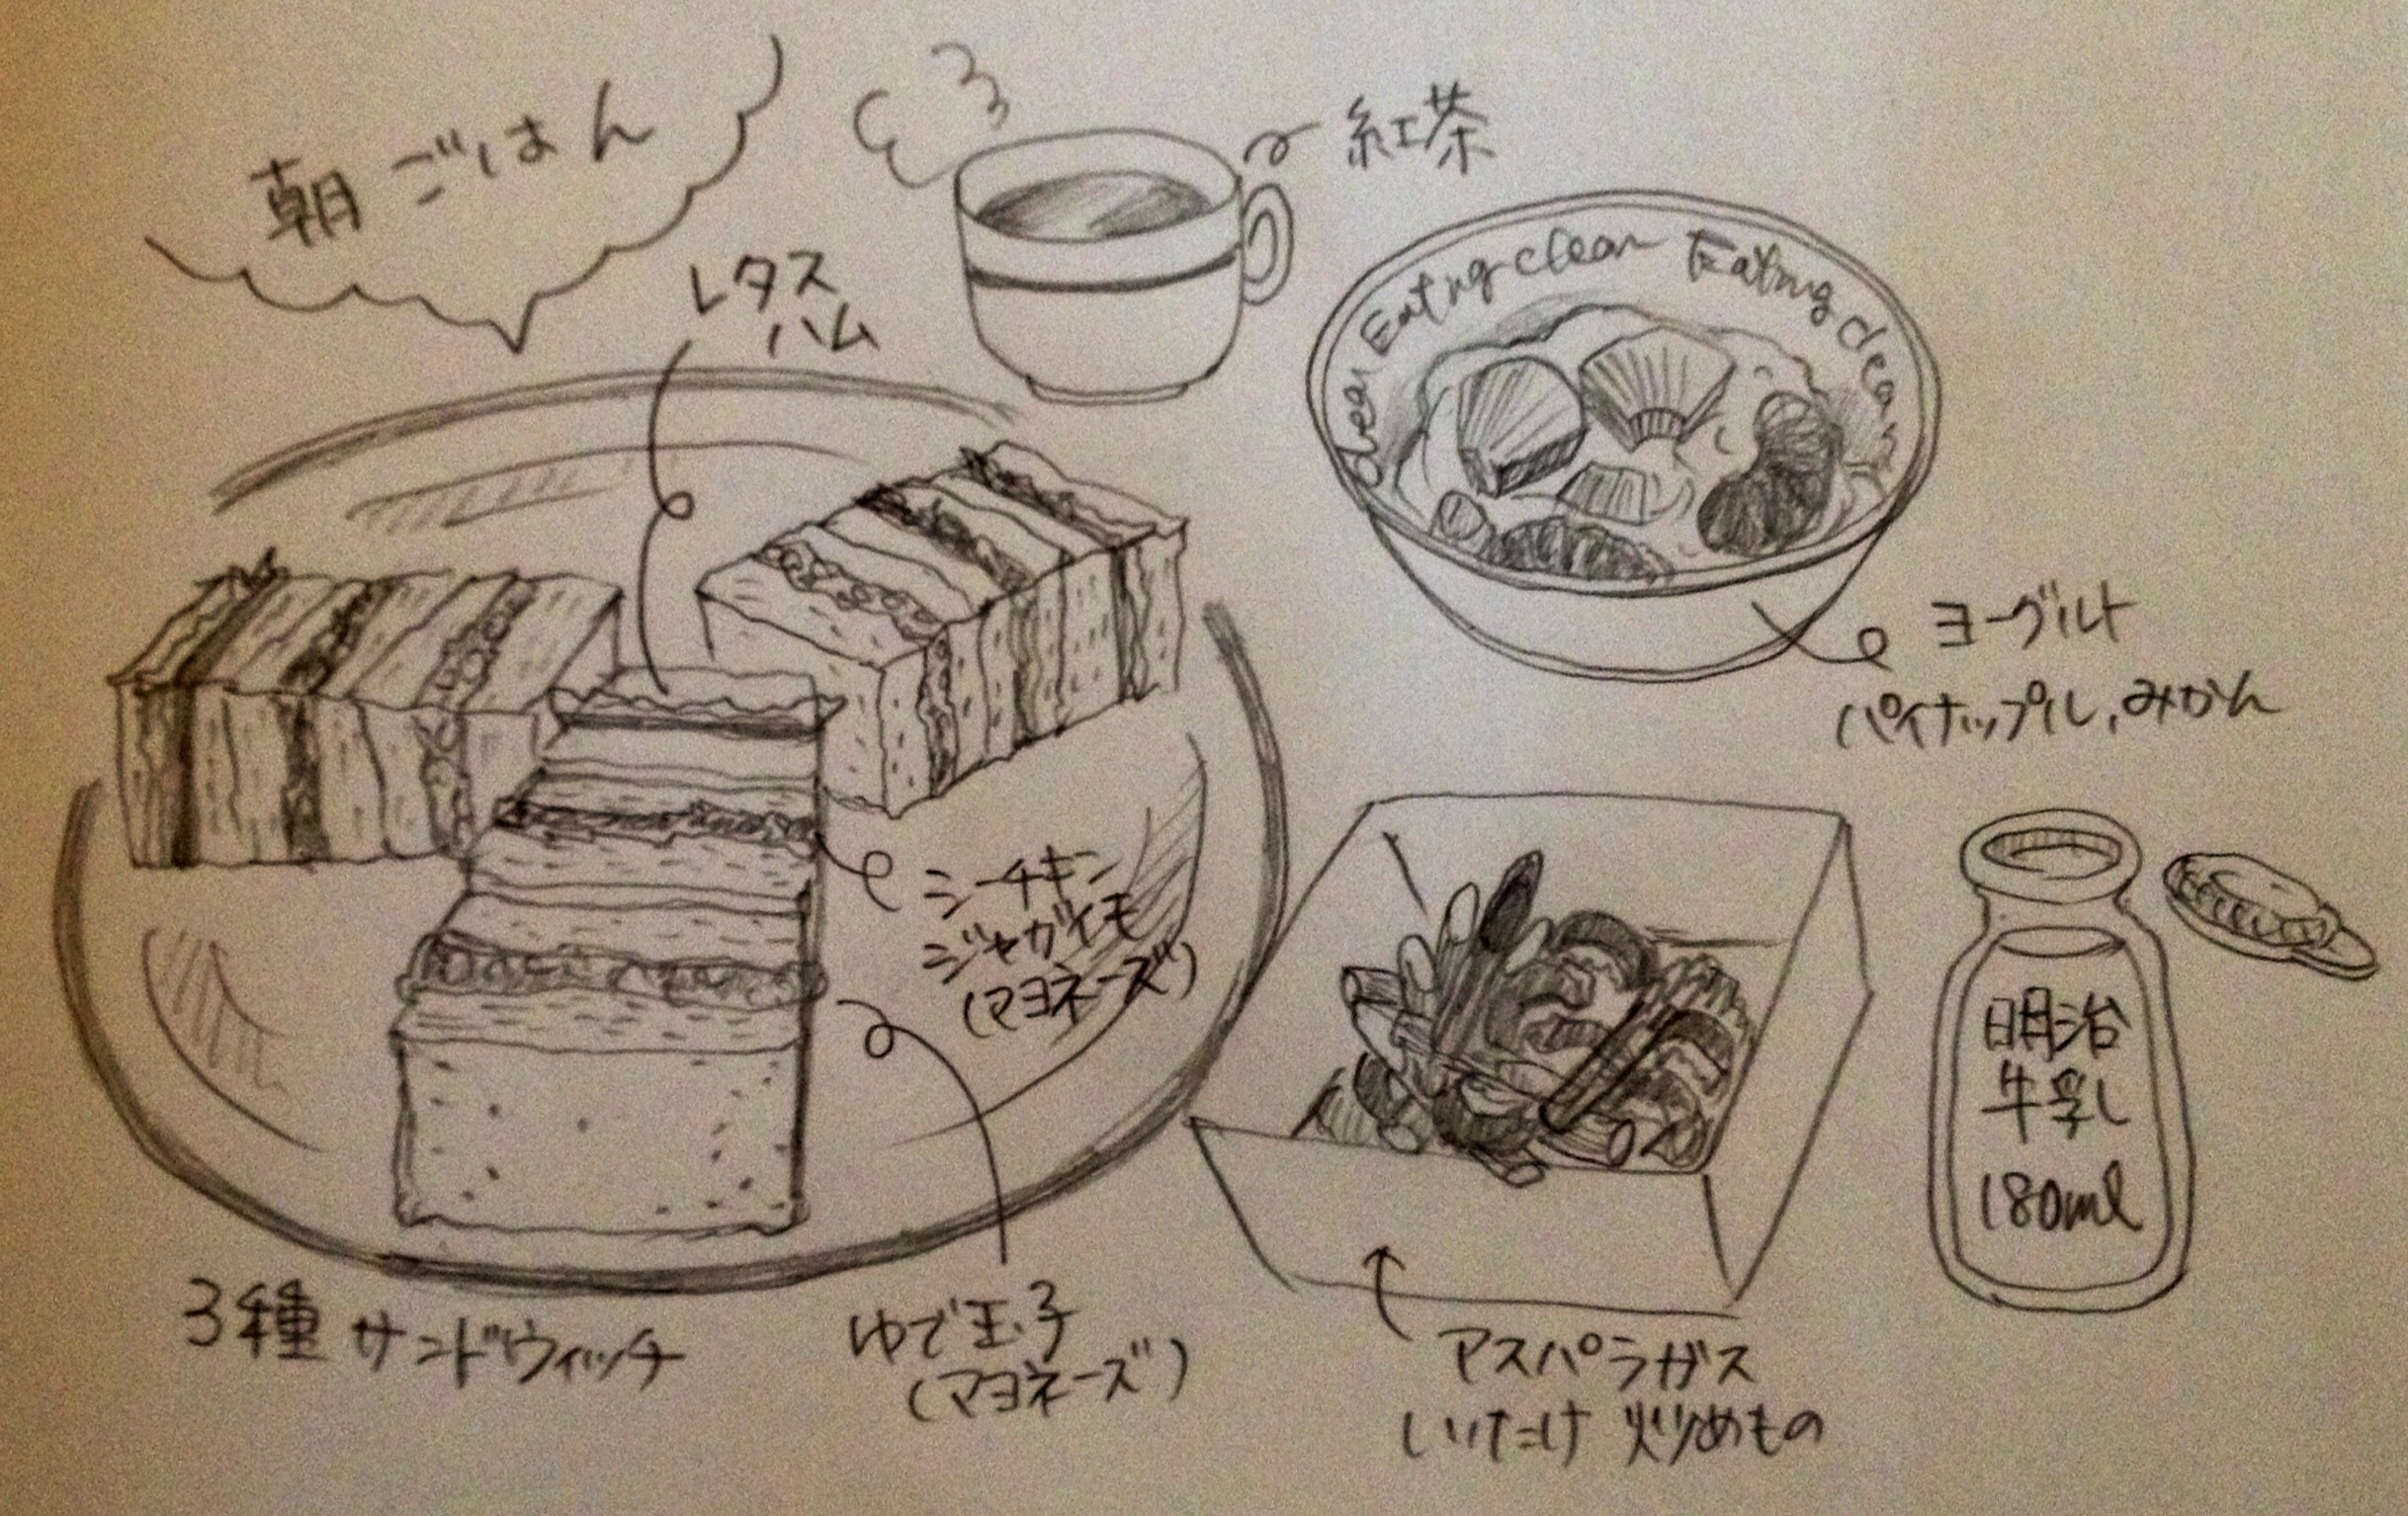 朝ごはん
紅茶
レタス
ハム
clean Eating clean Eating clean
ヨーグルト
パイナップル,みかん
シーチキン
ジャガイモ
(マヨネーズ)
明治
牛乳
180ml
3種 サンドウィッチ
ゆで玉子
(マヨネーズ)
アスパラガス
しいたけ 炒めもの